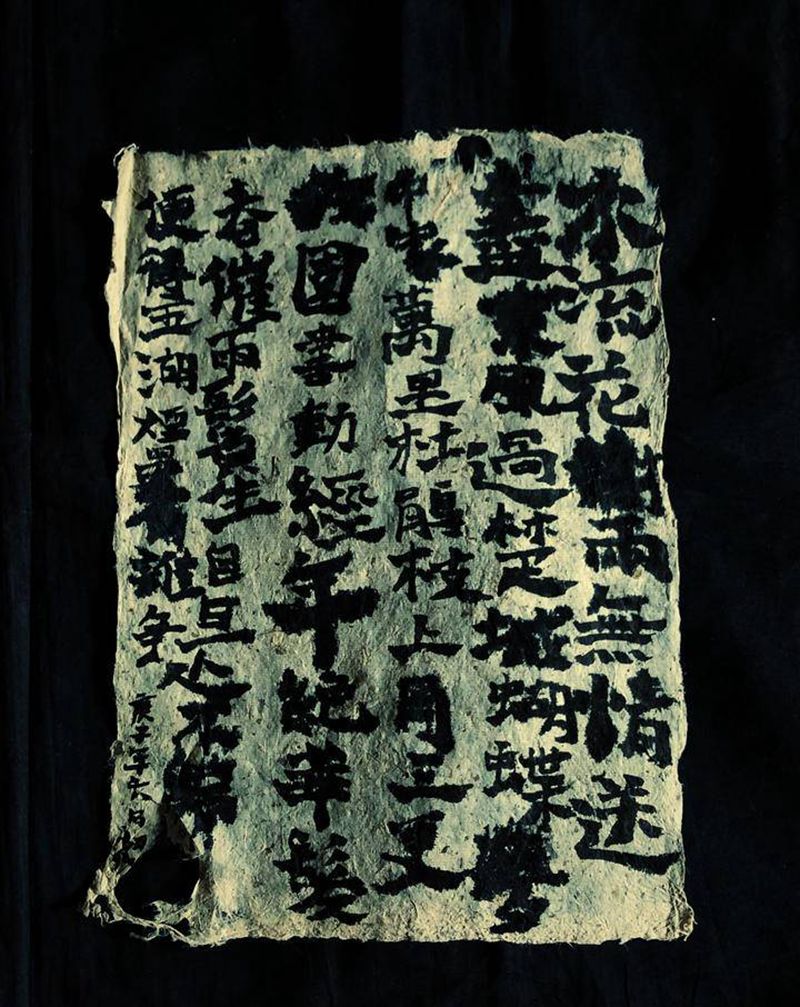 水流花謝兩無情送
盡東風過楚城蝴蝶夢
中家萬里杜鵑枝上月三更
故園書動經年絕華髮
春催兩鬢生自是不歸
便得五湖煙景有誰爭